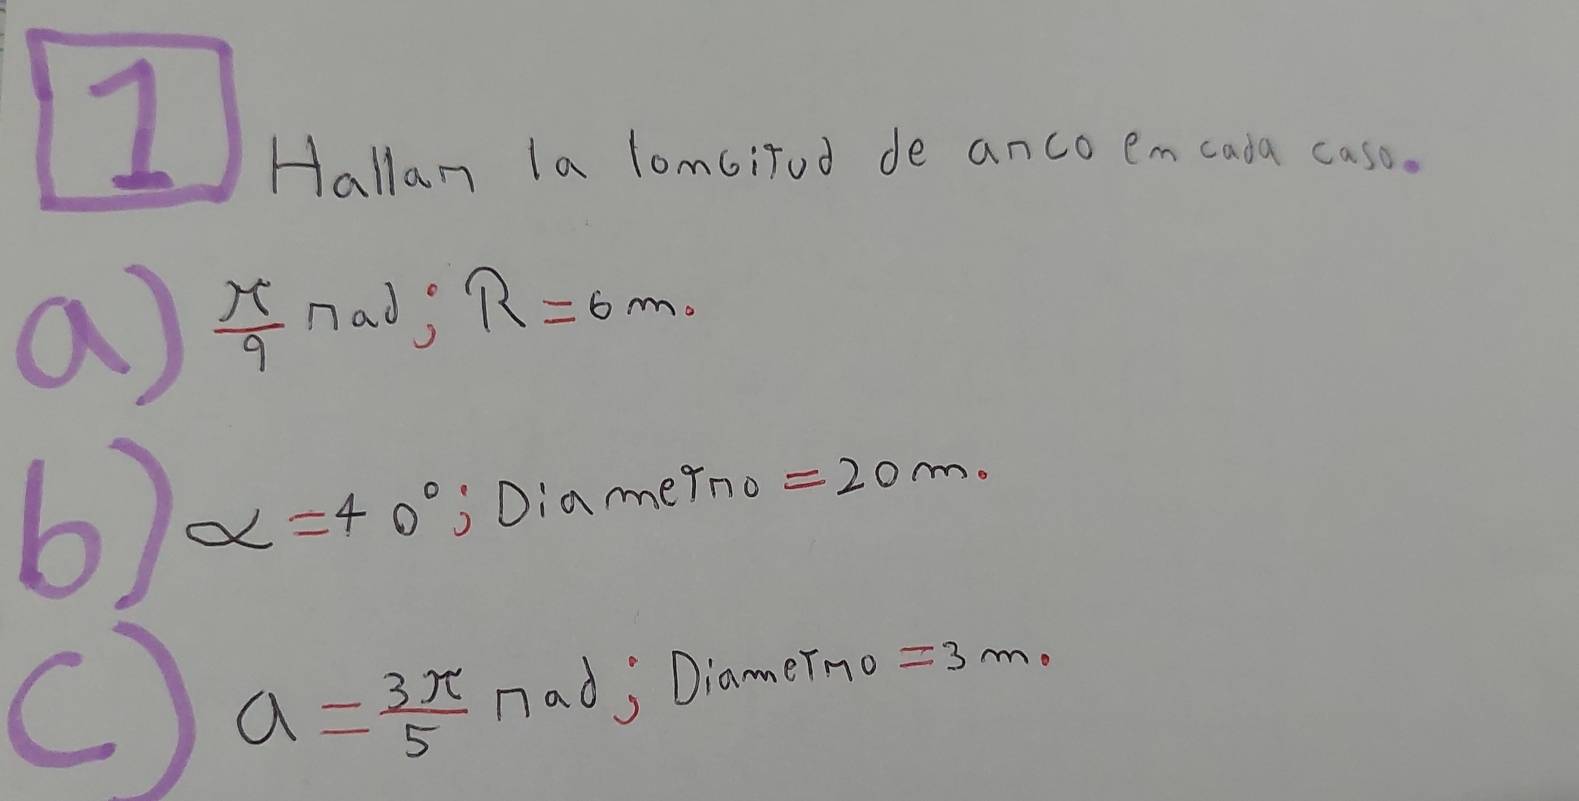 1 Hallar la longitud de arco en cada caso.
a) π/9 rad; R = 6 m.
b) α = 40°; Diametro = 20 m.
c) a = 3π/5 rad; Diametro = 3 m.